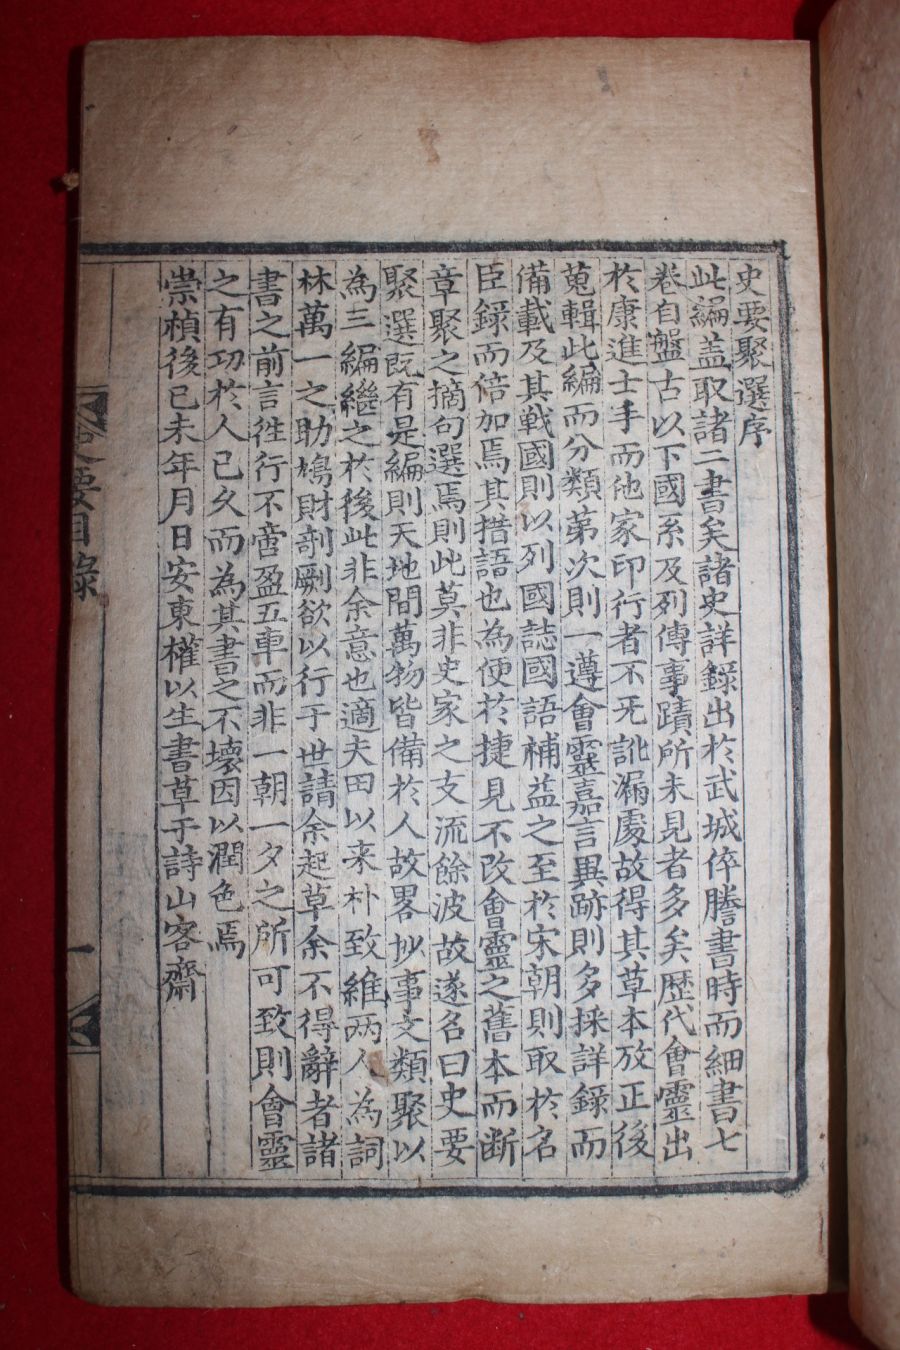 史要聚選序
此編盖取諸二書矣諸史詳錄出於武城倅謄書時而細書七
卷自盤古以下國系及列傳事蹟所未見者多矣歷代會靈出
於康進士手而他家印行者不旡訛漏處故得其草本放正後
蒐輯此編而分類第次則一遵會靈嘉言異跡則多採詳錄而
備載及其戰國則以列國誌國語補益之至於宋朝則取於名
臣錄而倍加焉其措語也為便於捷見不改會靈之舊本而断
章聚之摘句選焉則此莫非史家之支流餘波故遂名曰史要
聚選既有是編則天地間萬物皆備於人故畧抄事文類聚以
為三編繼之於後此非余意也適夫田以来朴致維兩人為詞
林萬一之助鳩財剞劂欲以行于世請余起草余不得辭者諸
書之前言徃行不啻盈五車而非一朝一夕之所可致則會靈
之有功於人已久而為其書之不壞因以潤色焉
崇楨後己未年月日安東權以生書草于詩山客齋
史要目錄
一